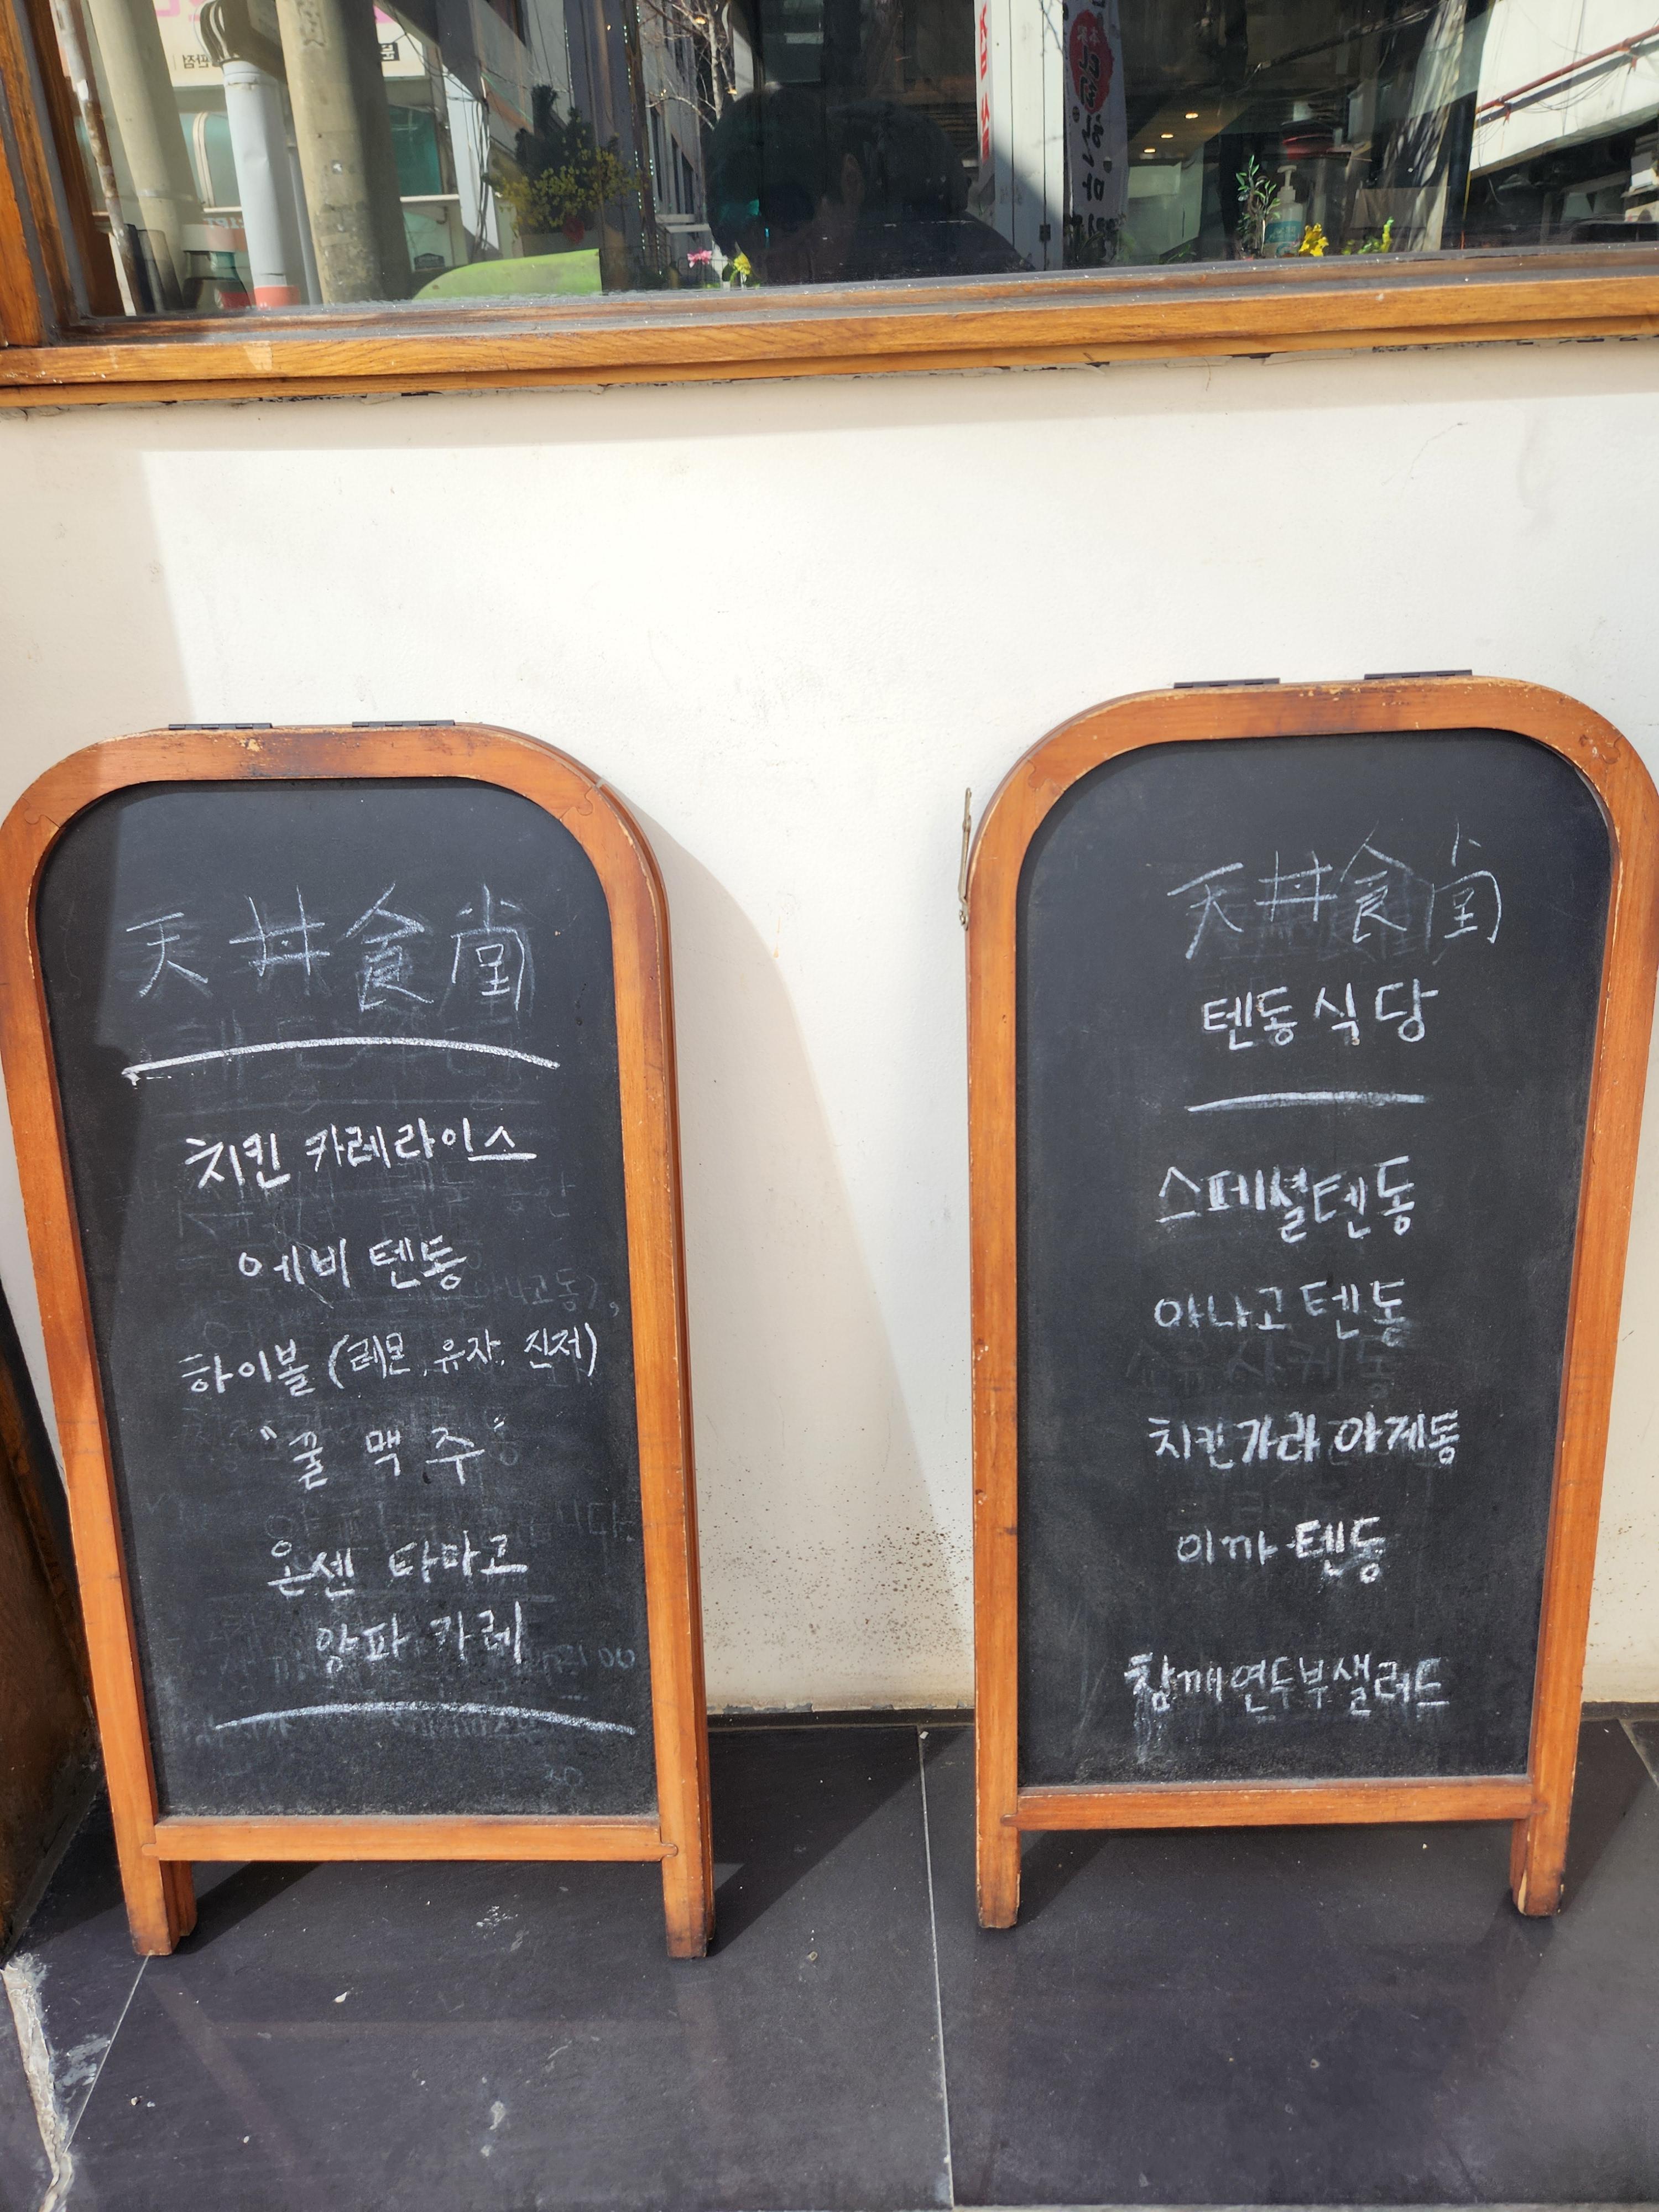 天丼食堂
치킨 카레라이스
에비 텐동
하이볼 (레몬, 유자, 진저)
"굴 맥주"
온센 타마고
양파 카레
天丼食堂
텐동식당
스페셜텐동
아나고텐동
치킨가라아게동
이까텐동
참깨연두부샐러드